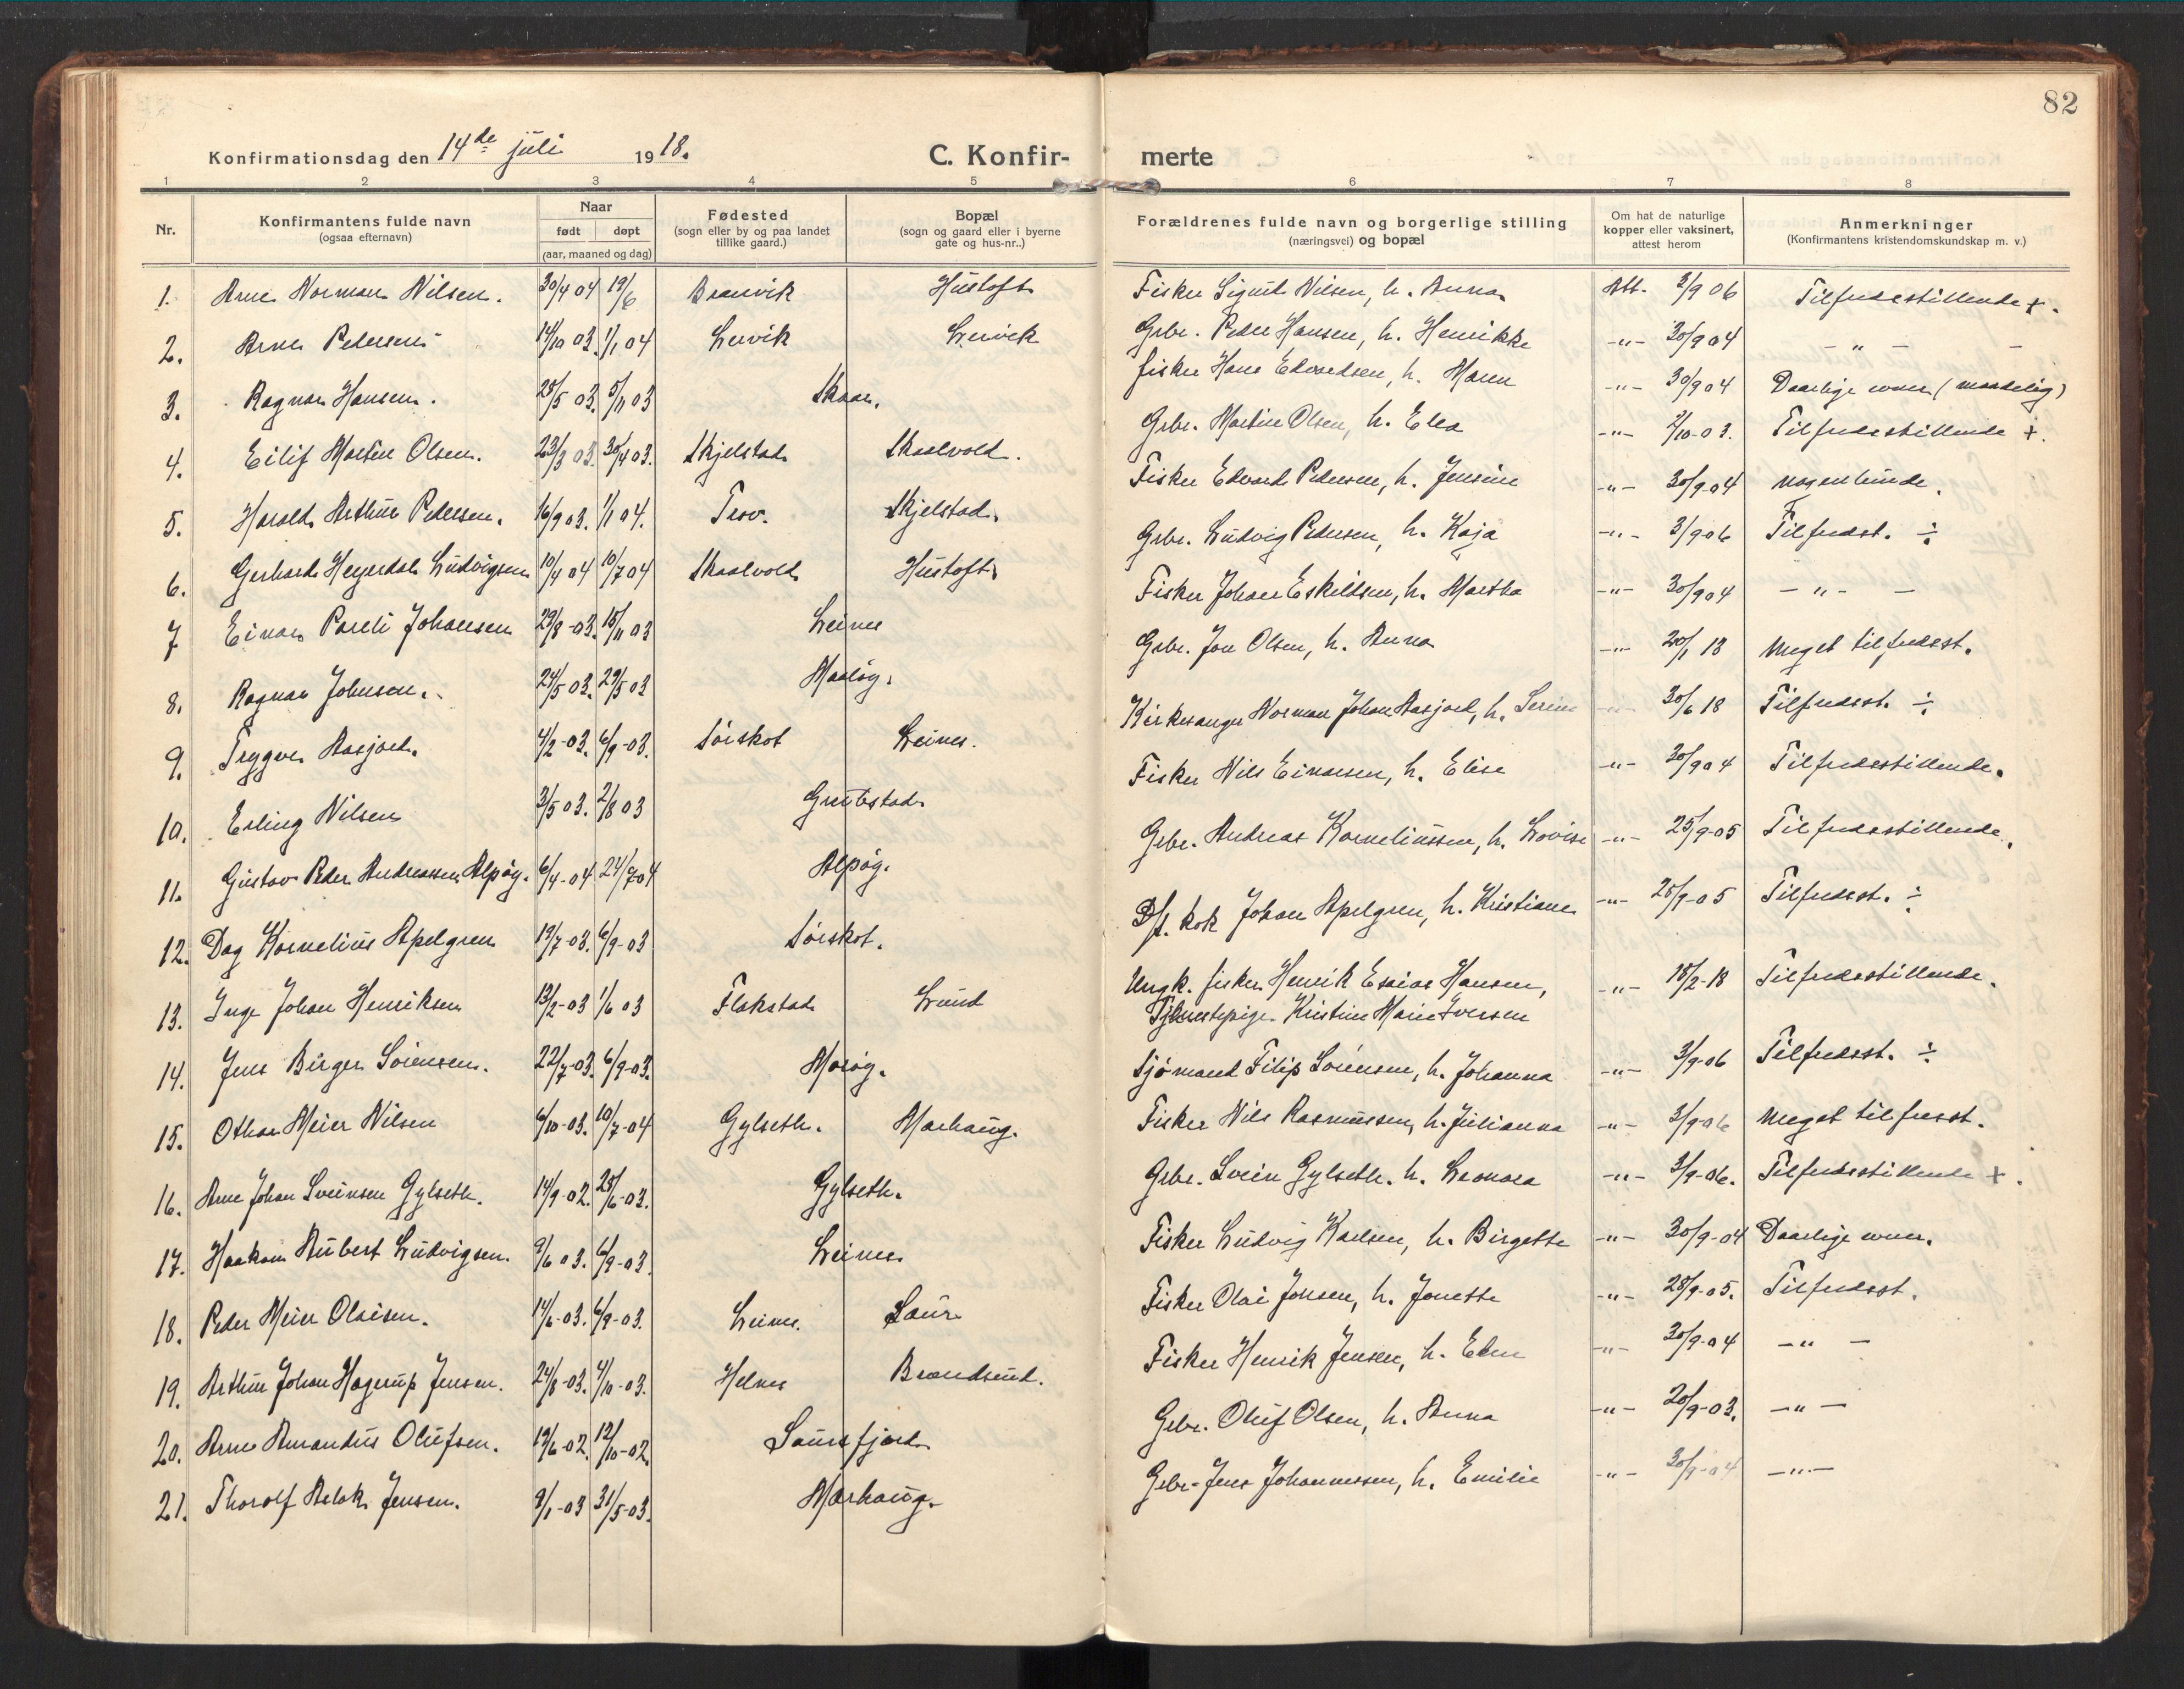 82
Konfirmationsdag den 14de juli 1918.
C. Konfir-
merte
1 2 3 4 5 6 7 8
Nr.
Konfirmantens fulde navn
(ogsaa efternavn)
Naar
født døpt
(aar, maaned og dag)
Fødested
(sogn eller by og paa landet
tillike gaard.)
Bopæl
(sogn og gaard eller i byerne
gate og hus-nr..)
Forældrenes fulde navn og borgerlige stilling
(næringsvei) og bopæl
Om hat de naturlige
kopper eller vaksinert,
attest herom
Anmerkninger
(Konfirmantens kristendomskundskap m. v.)
1. Arne Norman Nilsen. 30/4 04 19/6 Brænvik Hustoft Fisker Sigurd Nilsen, h. Anna Att. 3/9 06 Tilfredsstillende +.
2. Arne Pedersen 14/10 03. 1/1 04 Lervik Lervik Gbr. Peder Hansen, h. Henrikke -"- 30/9 04 - " -
3. Ragnar Hansen. 25/5 03. 5/11 03 Skaar. fisker Hans Edvardsen, h. Maren -"- 30/9 04 Daarlige evner (maadelig)
4. Eilif Martin Olsen. 23/3 03. 30/4 03. Skjelstad Skaalvold. Gbr. Martin Olsen, h. Elea -"- 2/10-03. Tilfredsstillende +.
5. Harald Arthur Pedersen. 16/9 03. 1/1 04. Skjelstad. Fisker Edvard Pedersen, h. Jensine -"- 30/9-04 nogenlunde.
6. Gerhard Heyerdal Ludvigsen 10/4 04 10/7 04 Skaalvold Hustoft Gbr. Ludvig Pedersen, h. Kaja -"- 3/9 06 Tilfredst. ÷
7 Einar Pareli Johansen 29/8-03. 15/11 03 Leines Fisker Johan Eskildsen, h. Martha -"- 30/9 04 - " - -
8. Ragnar Johnsen. 24/5 03. 29/5 03 Maaløy. Gbr. Jon Olsen, h. Anna -"- 20/1 18 Meget tilfredsst.
9. Trygve Aasjord. 4/2-03. 6/9-03. Sørskot Leines. Kirkesanger Norman Johan Aasjord, h. Serine -"- 30/6 18 Tilfredsst. ÷
10. Erling Nilsen 3/5 03. 2/8 03 Grubstad Fisker Nils Einarsen, h. Elise -"- 30/9 04 Tilfredsstillende.
11. Gustav Peder Andreassen Alpøy. 6/4-04 24/7 04 Alpøy. Gbr. Andreas Korneliussen, h. Lovise -"- 25/9-05 Tilfredsstillende.
12. Dag Kornelius Apelgren 19/7-03. 6/9-03 Sørskot. D/s. kok Johan Apelgren, h. Kristiane -"- 28/9-05 Tilfredsst. ÷
13. Inge Johan Henriksen 13/2-03 1/6 03 Flakstad Lund Ungk. fisker Henrik Esaias Hansen, -"- 18/2-18 Tilfredsstillende.
Tjenestepige Kristine Marie Iversen
14. Jens Birger Sørensen. 22/7-03. 6/9-03. Maløy. Sjømand Filip Sørensen, h. Johanna -"- 3/9-06 Tilfredsst. ÷
15. Othar Meier Nilsen 6/10-03. 10/7-04 Gylseth. Marhaug. Fisker Nils Rasmussen, h. Julianna -"- 3/9-06 Meget tilfredsst.
16. Arne Johan Sveinsen Gylseth. 14/9-02. 28/6-03. Gylseth. Gbr. Svein Gylseth. h. Leonora -"- 3/9-06. Tilfredsstillende +.
17. Haakon Hubert Ludvigsen. 9/6 03. 6/9-03. Leines. Fisker Ludvig Karlsen, h. Birgitte -"- 30/9-04 Daarlige evner.
18. Peder Meier Olaisen. 14/6-03. 6/9-03. Leines. Laur Fisker Olai Jonsen, h. Jonette -"- 28/9-05. Tilfredsst.
19. Arthur Johan Hagerup Jensen. 24/8-03. 4/10-03. Helnes Brandsund. Fisker Henrik Jensen, h. Elen -"- 30/9-04 - " -
20. Arne Amandus Olufsen. 19/6-02. 12/10-02. Saursfjord Gbr. Oluf Olsen, h. Anna -"- 20/9-03. - " -
21. Thorolf Aslak Jensen. 9/1-03 31/5-03. Marhaug. Gbr. Jens Johannessen, h. Emilie -"- 30/9-04 - " -